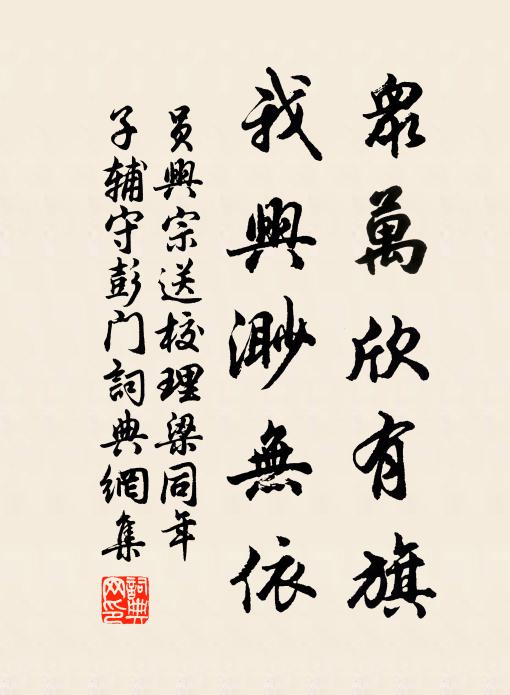 衆萬欣有旗
我興渺無依
員興宗送校理梁同年
子辅守彭门詞典網集
詞典网印